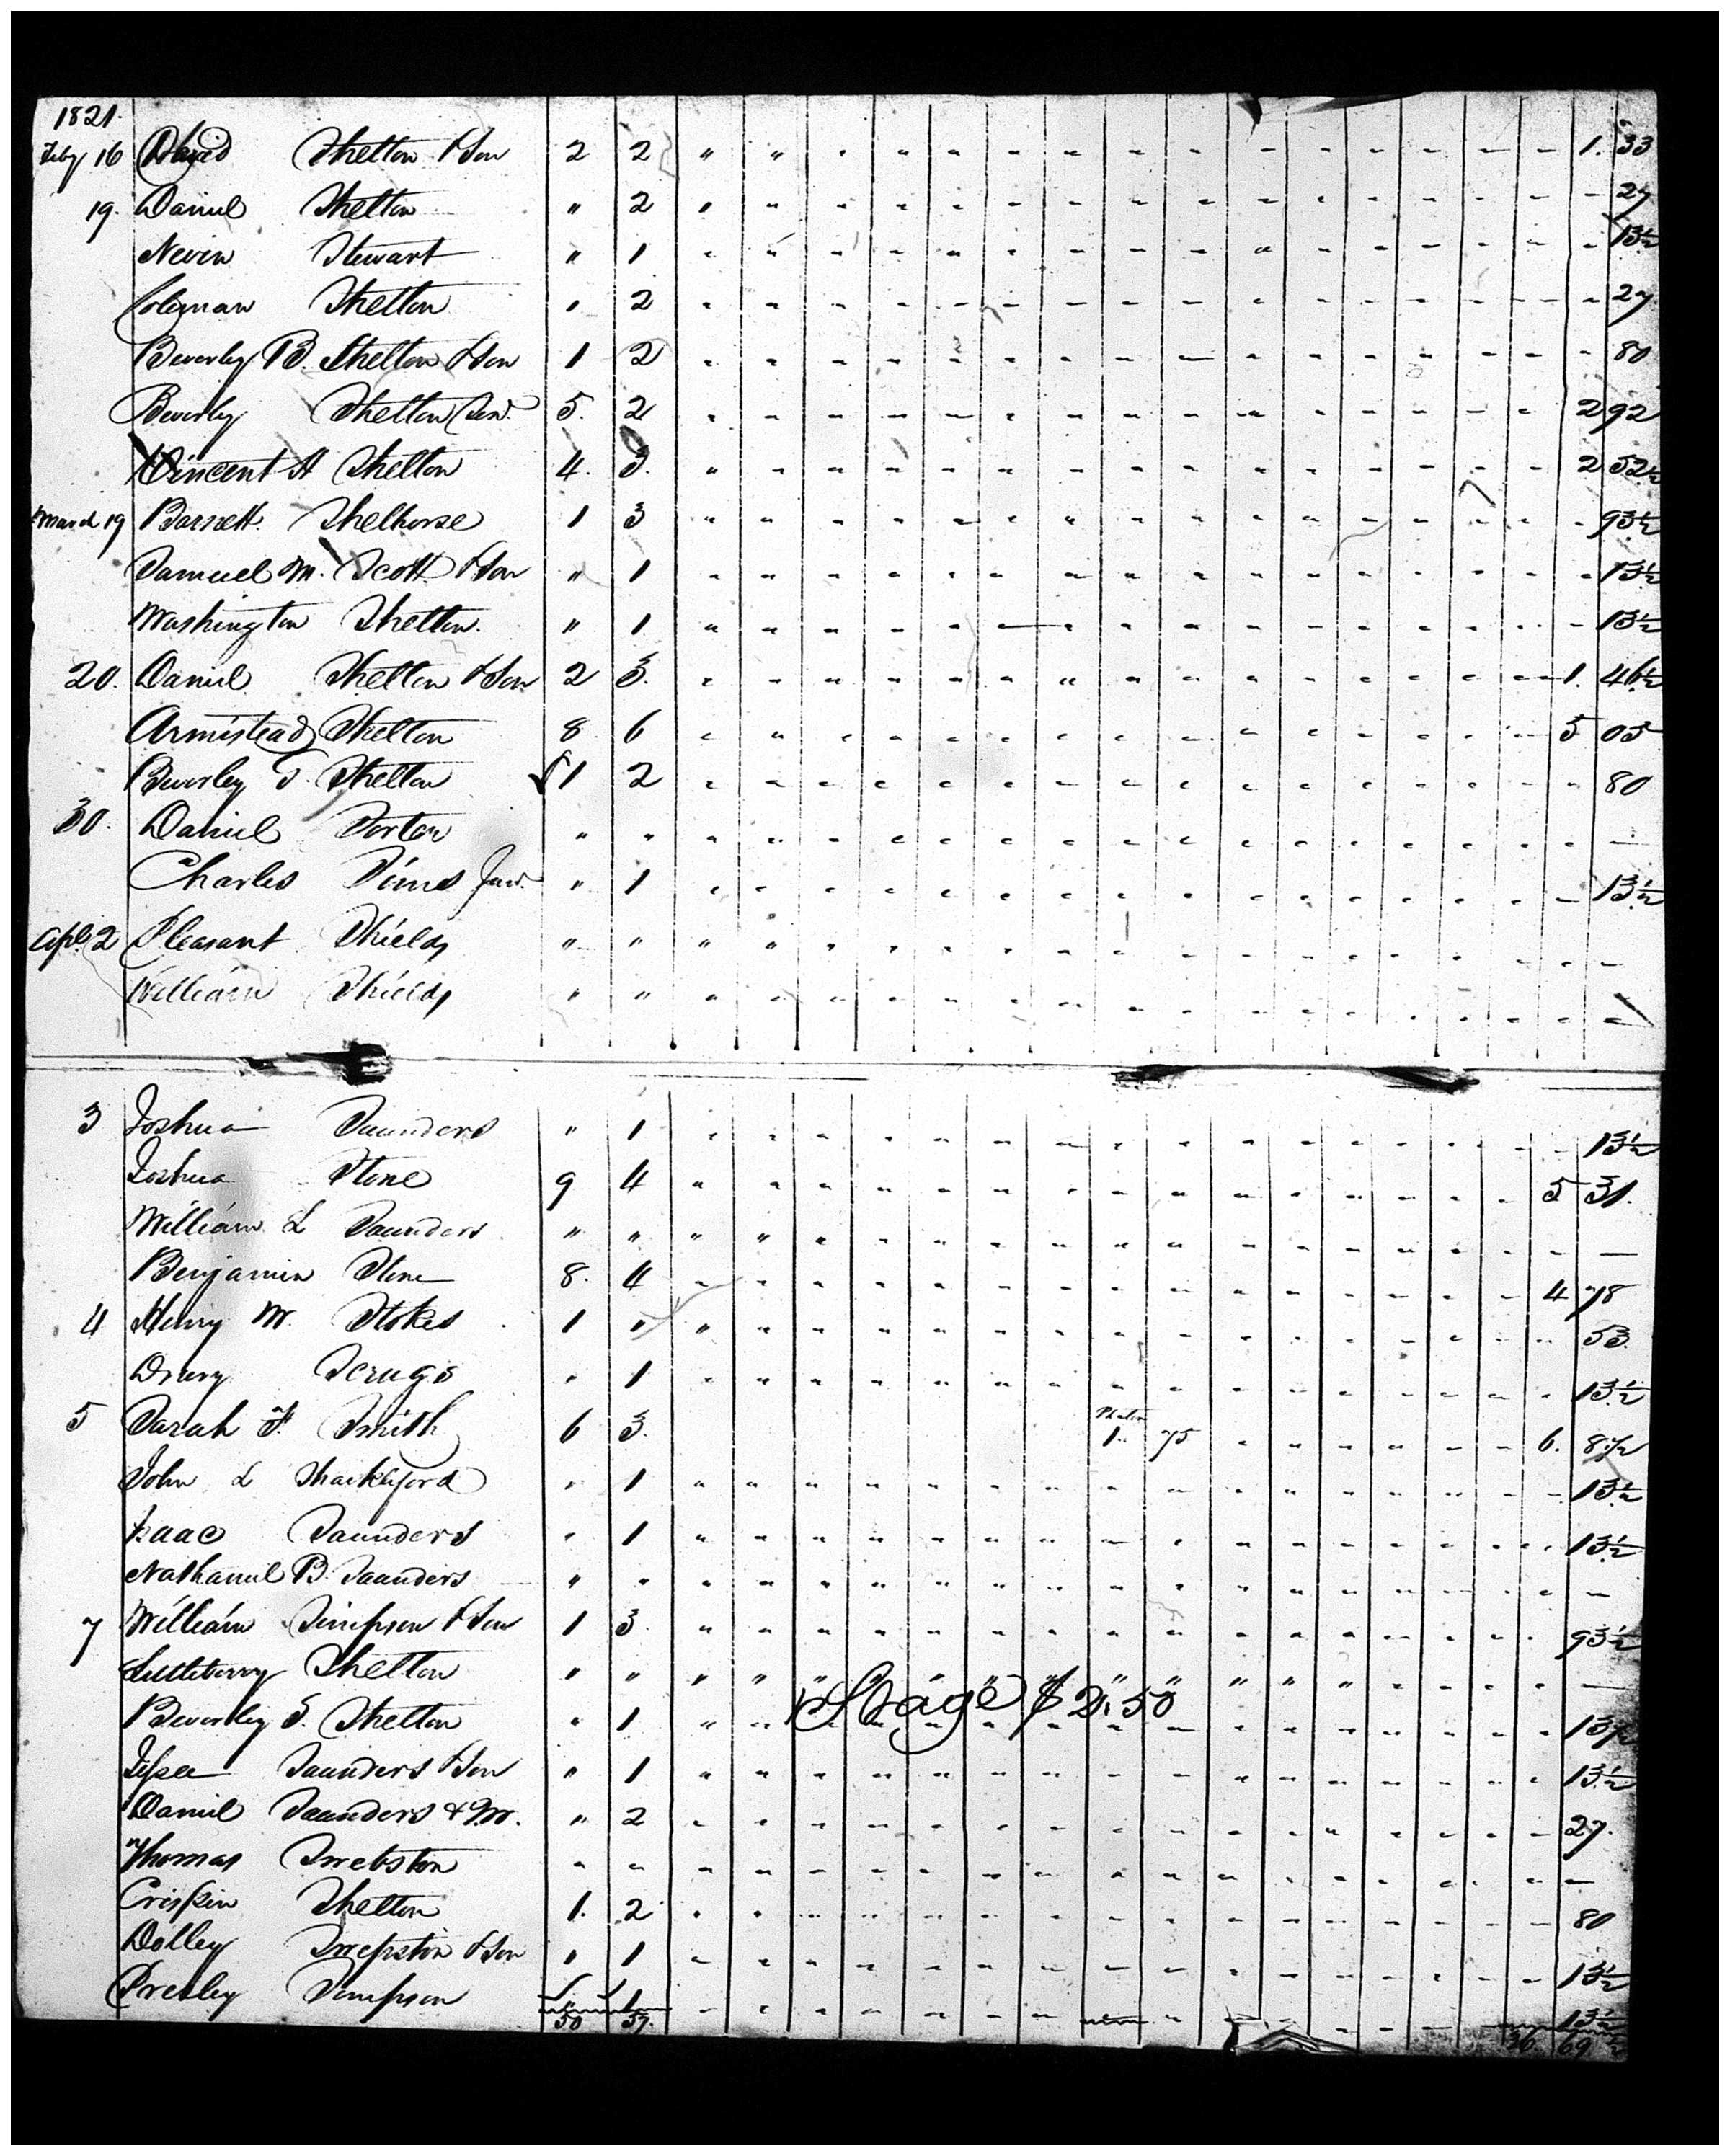 1821.
Feby 16 David Shelton & Son 2 2 " " - - - - - - - - - - - - - 1. 33
19. Daniel Shelton " 2 " - - - - - - - - - - - - - - - 27
Nevin Stewart " 1 - - - - - - - - - - - - - - - - 13½
Coleman Shelton " 2 - - - - - - - - - - - - - - - - 27
Beverley B. Shelton & Son 1 2 - - - - - - - - - - - - - - - - 80
Beverley Shelton Sen. 5. 2 - - - - - - - - - - - - - - - 2 92
Vincent H Shelton 4. 3. " - - - - - - - - - - - - - - 2 52½
March 19 Barnett Shelhorse 1 3 " - - - - - - - - - - - - - - - 93½
Samuel M. Scott & Son " 1 - - - - - - - - - - - - - - - - 13½
Washington Shelton. " 1 - - - - - - - - - - - - - - - - 13½
20. Daniel Shelton & Son 2 3. - - - - - - - - - - - - - - - 1. 46½
Armistead Shelton 8 6 - - - - - - - - - - - - - - - 5 05
Beverley T. Shelton 1 2 - - - - - - - - - - - - - - - - 80
30. Daniel Sorton " " - - - - - - - - - - - - - - - - —
Charles Sims Junr. " 1 - - - - - - - - - - - - - - - - 13½
Apl. 2 Pleasant Shields " " " " - - - - - - - - - - - - - - -
William Shields " " " - - - - - - - - - - - - - - - -
3 Joshua Saunders " 1 - - - - - - - - - - - - - - - - 13½
Joshua Stone 9 4 " - - - - - - - - - - - - - - 5 31.
William L Saunders " " " " - - - - - - - - - - - - - - —
Benjamin Stone 8. 4 - - - - - - - - - - - - - - - 4 78
4 Henry M. Stokes 1 " " - - - - - - - - - - - - - - - 53.
Drury Scrugs " 1 - - - - - - - - - - - - - - - - 13½
5 Sarah F. Smith 6 3. Phaeton 1. 75 - - - - - - 6. 8½
John L Shackleford " 1 " - - - - - - - - - - - - - - - 13½
Isaac Saunders " 1 " - - - - - - - - - - - - - - - 13½
Nathaniel B. Saunders " " - - - - - - - - - - - - - - - - —
7 William Simpson & Son 1 3. " - - - - - - - - - - - - - - - 93½
Littleberry Shelton " " " " " " " " " " " " " - - - - —
Stage $ 2.50
Beverley S. Shelton " 1 " - - - - - - - - - - - - - - - 13½
Jesse Saunders & Son " 1 " - - - - - - - - - - - - - - - 13½
Daniel Saunders & " 2 - - - - - - - - - - - - - - - - 27.
Thomas Swebston - - - - - - - - - - - - - - - - - - —
Crispin Shelton 1. 2 - - - - - - - - - - - - - - - - 80
Dolley Swepston & Son " 1 - - - - - - - - - - - - - - - - 13½
Presley Simpson " 1 - - - - - - - - - - - - - - - - 13½
50 57. 36 69½